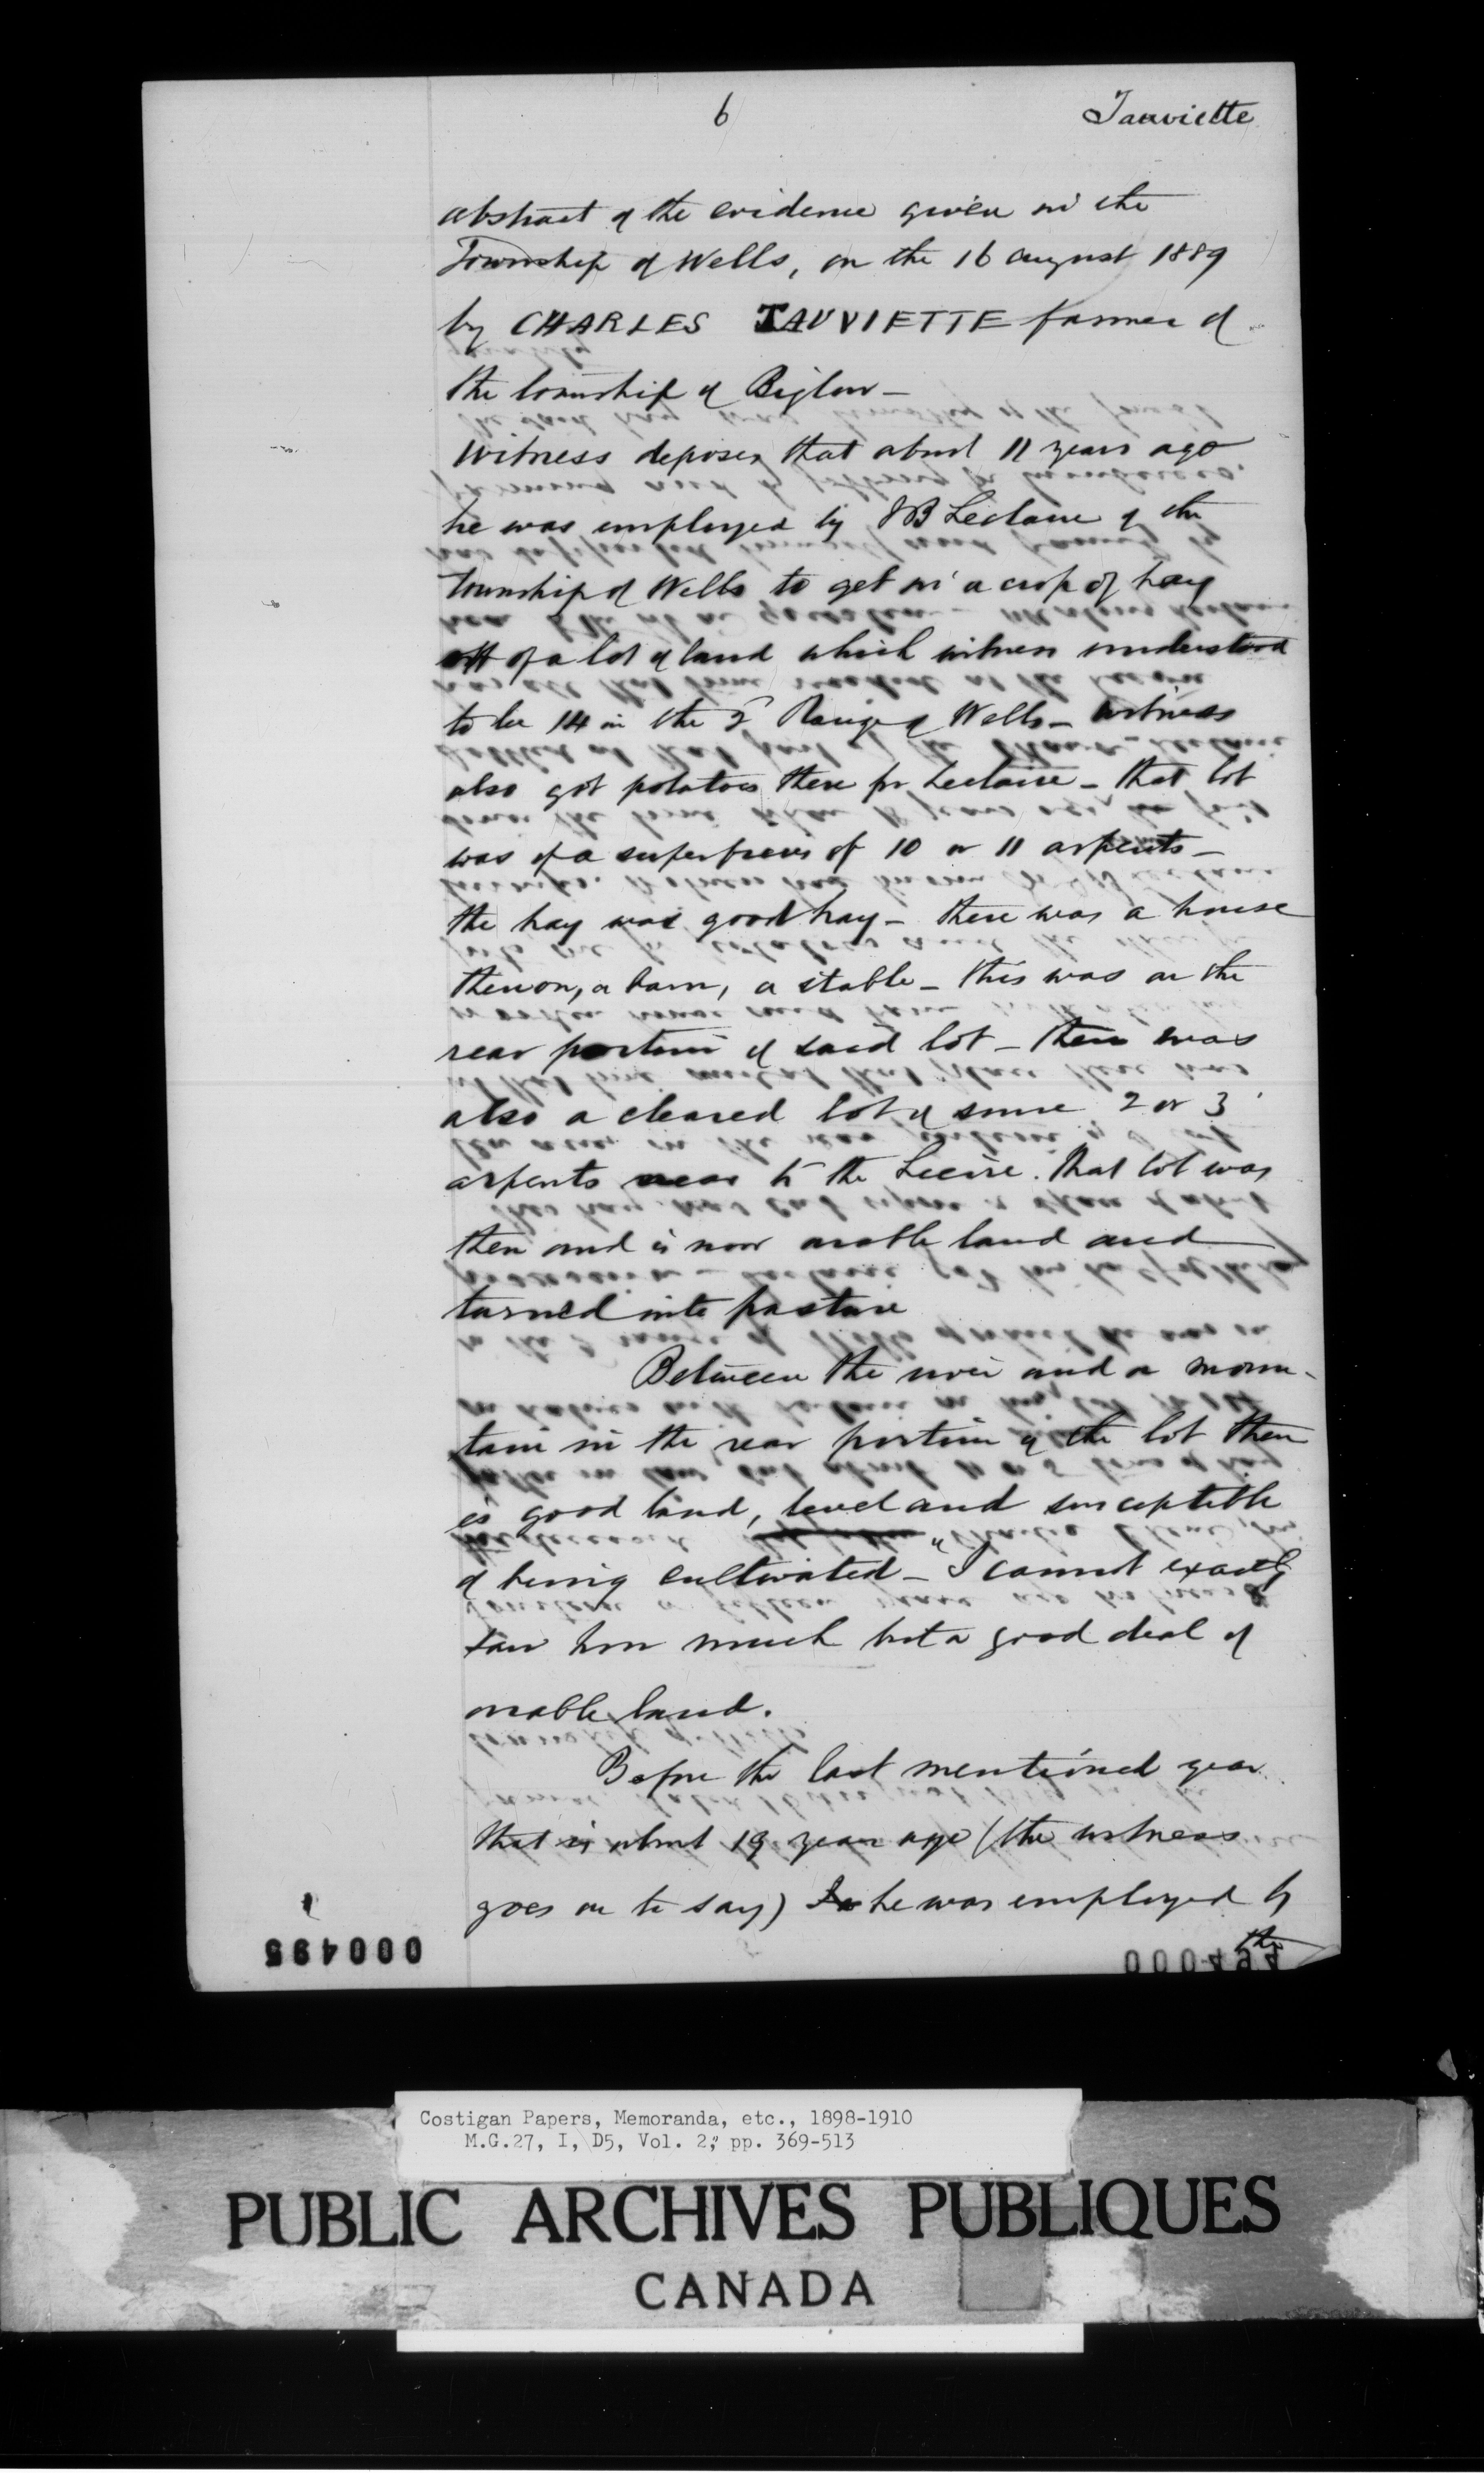 6
Jauviette
abstract of the evidence given in the
Township of Wells, on the 16 august 1889
by CHARLES JAUVIETTE farmer of
the township of Biglow -
Witness deposes that about 11 years ago
he was employed by JB Leclaire of the
township of Wells to get in a crop of hay
off of a lot of land which witness understood
to be 14 in the 2d Range of Wells - witness
also got potatoes there for Leclaire - that lot
was of a superficies of 10 or 11 arpents -
the hay was good hay - there was a house
thereon, a barn, a stable - this was on the
rear portion of said lot - there was
also a cleared lot of some 2 or 3
arpents near to the Lievre. that lot was
then and is now arable land and
turned into pasture
Between the river and a moun-
tain in the rear portion of the lot there
is good land, level and susceptible
of being cultivated - "I cannot exactly
how much but a good deal of
arable land.
Before the last mentioned year
that is about 19 years ago (the witness
goes on to say) he was employed by
the
000495
000494
Costigan Papers, Memoranda, etc., 1898-1910
M.G.27, I, D5, Vol. 2, pp. 369-513
PUBLIC ARCHIVES PUBLIQUES
CANADA